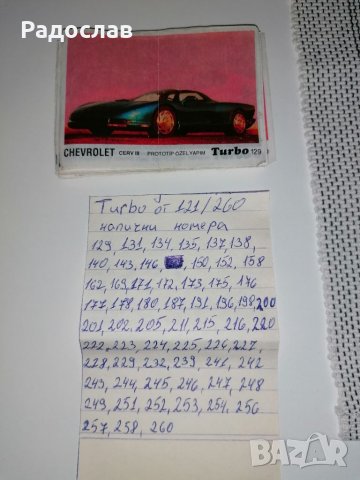 Радослав
CHEVROLET CERV III PROTOTİP ÖZEL YAPIM Turbo 129
Turbo от 121/260
налични номера
129, 131, 134, 135, 137, 138,
140, 143, 146, 150, 152, 158
162, 169, 171, 172, 173, 175, 176
177, 178, 180, 187, 191, 196, 198, 200
201, 202, 205, 211, 215, 216, 220
222, 223, 224, 225, 226, 227,
228, 229, 232, 239, 241, 242
243, 244, 245, 246, 247, 248
249, 251, 252, 253, 254, 256
257, 258, 260
BAZAR